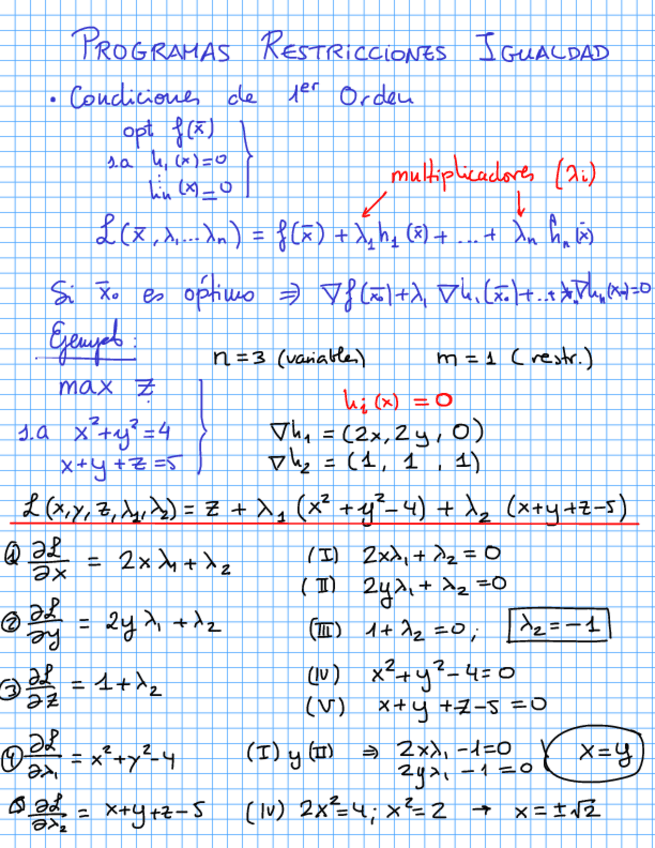 PROGRAMAS RESTRICCIONES IGUALDAD
• Condiciones de 1er Orden
opt f(x̄)
s.a h₁(x)=0
hₘ(x)=0
multiplicadores (λi)
L(x̄, λ₁...λn) = f(x̄) + λ₁h₁(x̄) + ... + λn hn(x̄)
Si x̄₀ es óptimo ⇒ ∇f(x̄₀)+λ₁ ∇h₁(x̄₀)+...+λn∇hn(x₀)=0
Ejemplo:
n=3 (variables) m=1 (restr.)
max z
hi(x) = 0
s.a x²+y²=4
∇h₁ = (2x, 2y, 0)
x+y+z=5
∇h₂ = (1, 1, 1)
L(x,y,z,λ₁,λ₂) = z + λ₁(x²+y²-4) + λ₂ (x+y+z-5)
① ∂L/∂x = 2xλ₁+λ₂ (I) 2xλ₁+λ₂=0
(II) 2yλ₁+λ₂=0
② ∂L/∂y = 2yλ₁+λ₂ (III) 1+λ₂=0, λ₂=-1
③ ∂L/∂z = 1+λ₂ (IV) x²+y²-4=0
(V) x+y+z-5=0
④ ∂L/∂λ₁ = x²+y²-4 (I) y (II) ⇒ 2xλ₁-1=0 x=y
2yλ₁-1=0
⑤ ∂L/∂λ₂ = x+y+z-5 (IV) 2x²=4; x²=2 → x=±√2